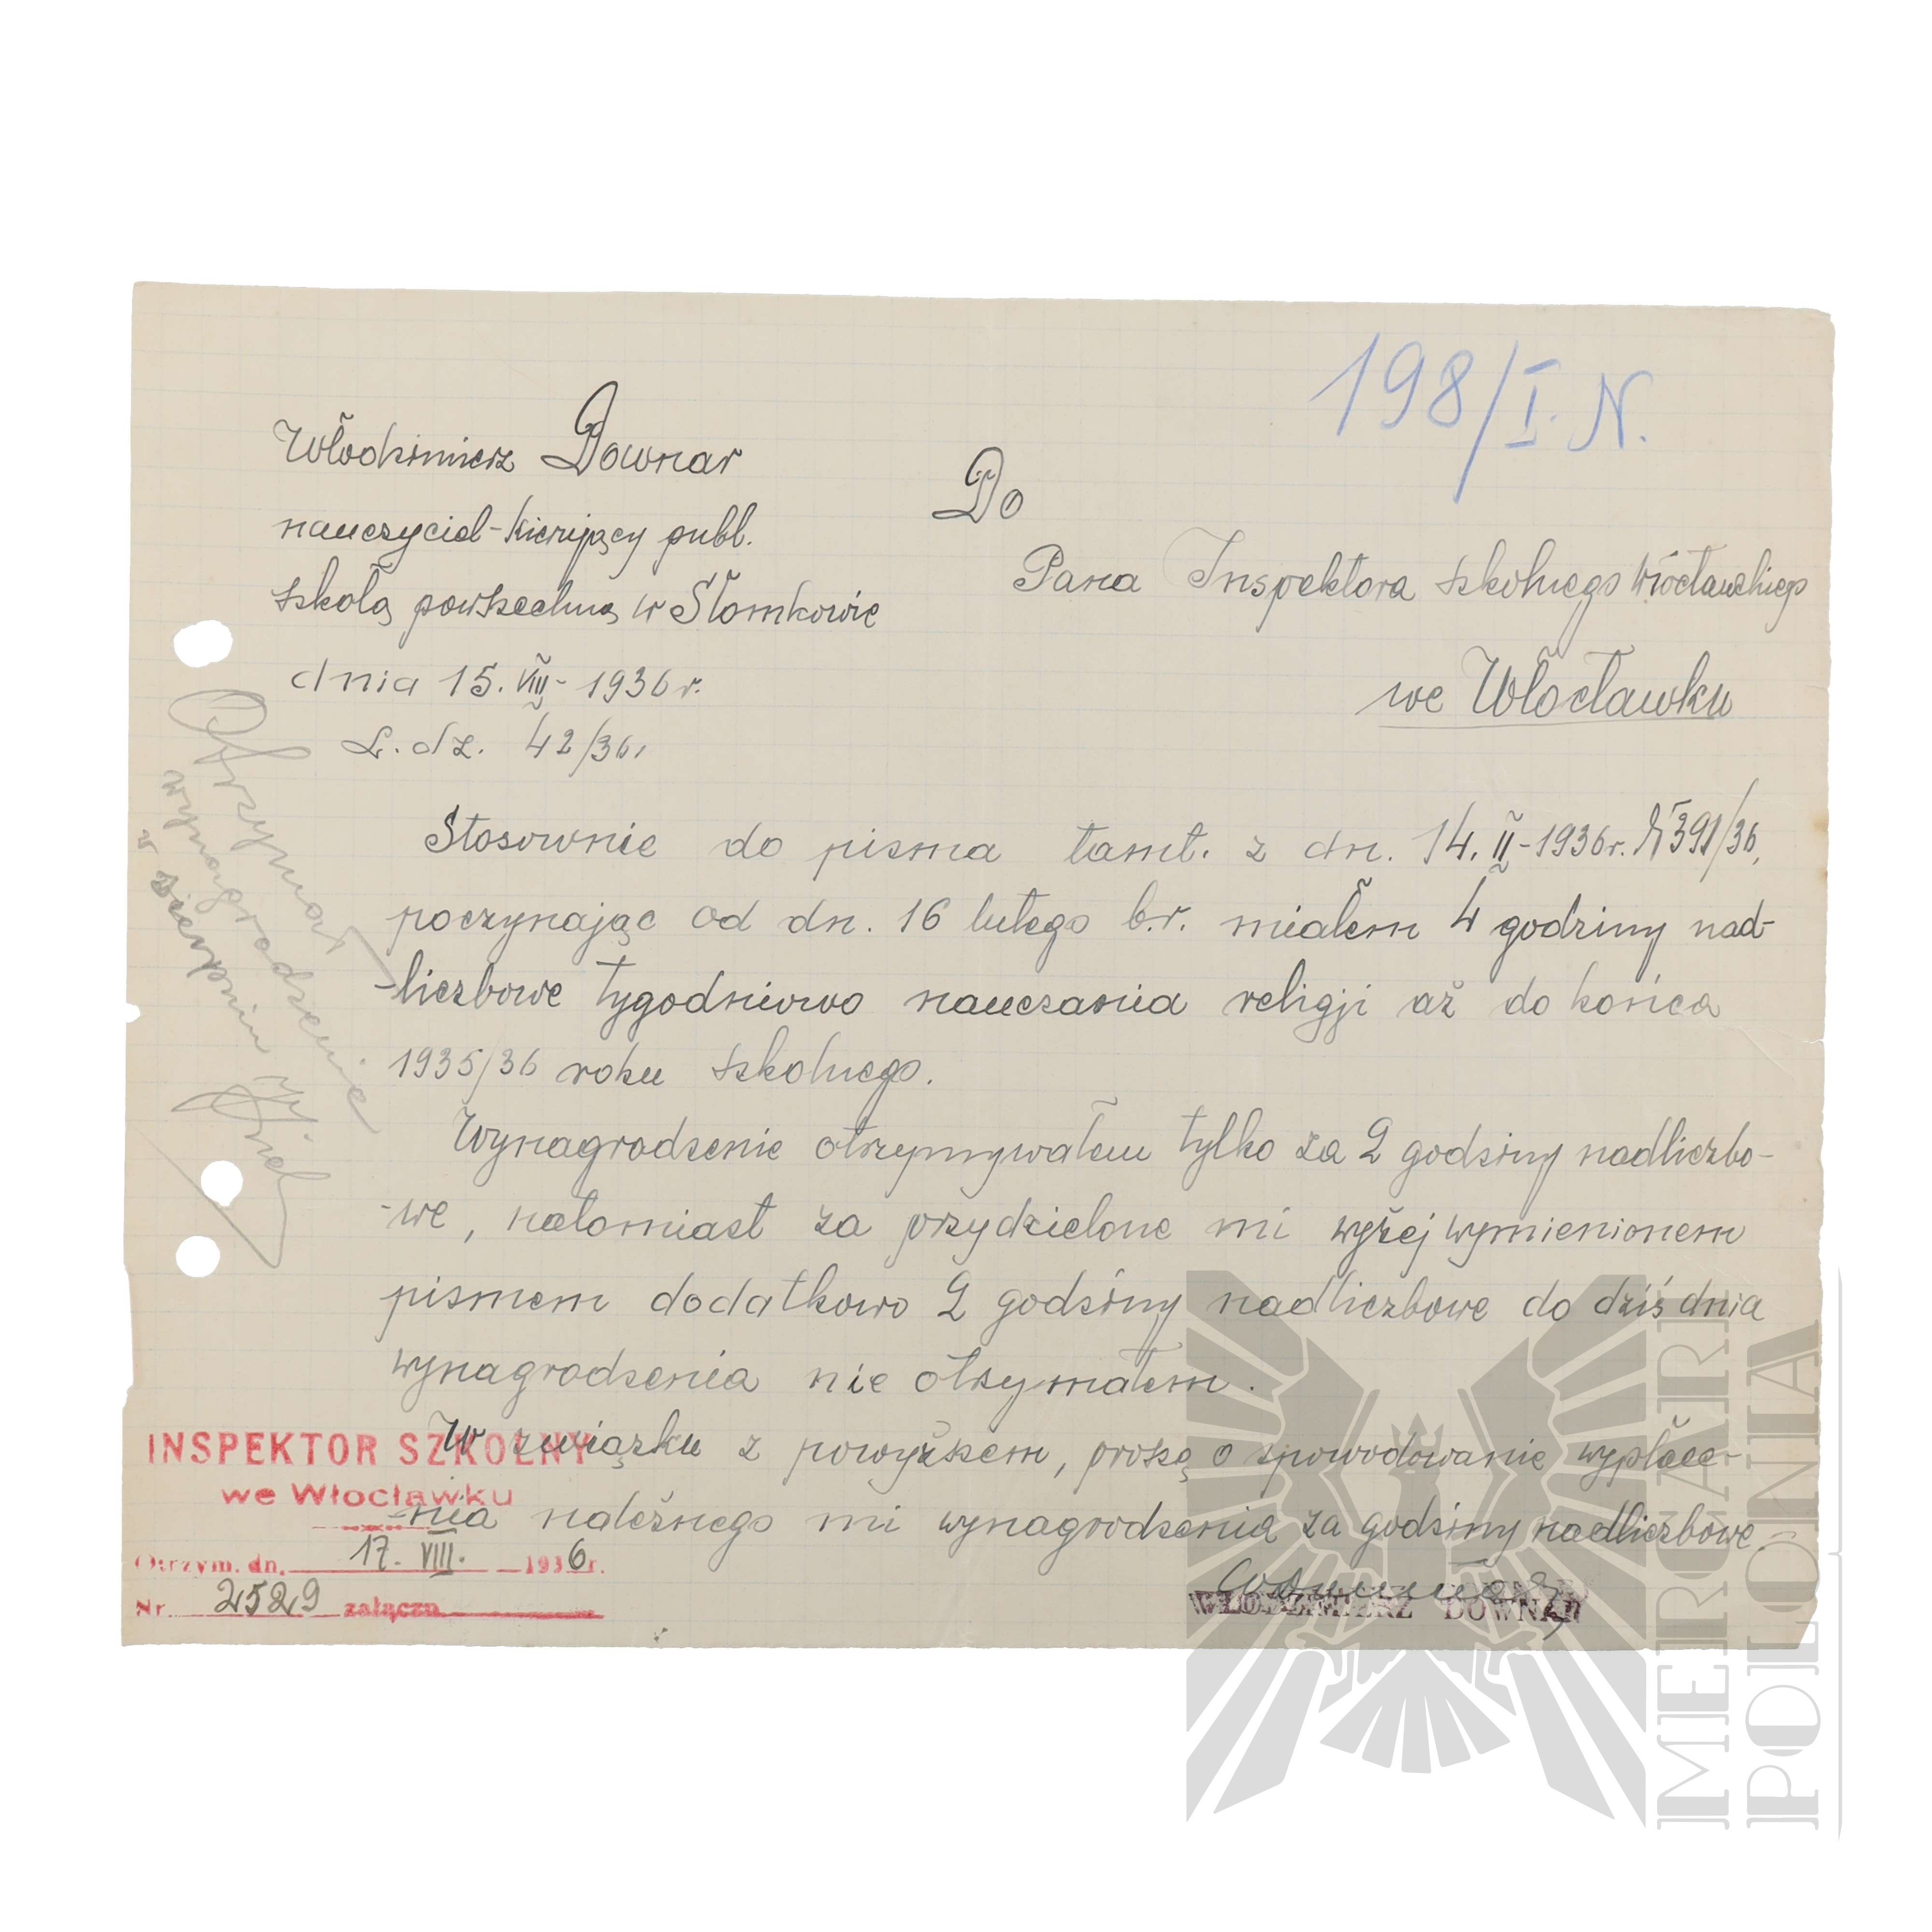 198/I. N.
Włodzimierz Downar
nauczyciel-kierujący publ.
szkołą powszechną w Słomkowie
dnia 15. VIII - 1936 r.
L. dz. 42/36.
Do
Pana Inspektora szkolnego włocławskiego
we Włocławku
Stosownie do pisma tamt. z dn. 14. II - 1936 r. № 391/36,
poczynając od dn. 16 lutego b.r. miałem 4 godziny nad-
-liczbowe tygodniowo nauczania religji aż do końca
1935/36 roku szkolnego.
Wynagrodzenie otrzymywałem tylko za 2 godziny nadliczbo-
-we, natomiast za przydzielone mi wyżej wymienionem
pismem dodatkowo 2 godziny nadliczbowe do dziś dnia
wynagrodzenia nie otrzymałem.
W związku z powyższem, proszę o spowodowanie wypłace-
-nia należnego mi wynagrodzenia za godziny nadliczbowe.
WŁODZIMIERZ DOWNAR
Otrzymał
wynagrodzenie
w sierpniu
INSPEKTOR SZKOLNY
we Włocławku
Otrzym. dn. 17. VIII. 1936 r.
Nr. 2529 załączn.
MERCARI
POLONIA